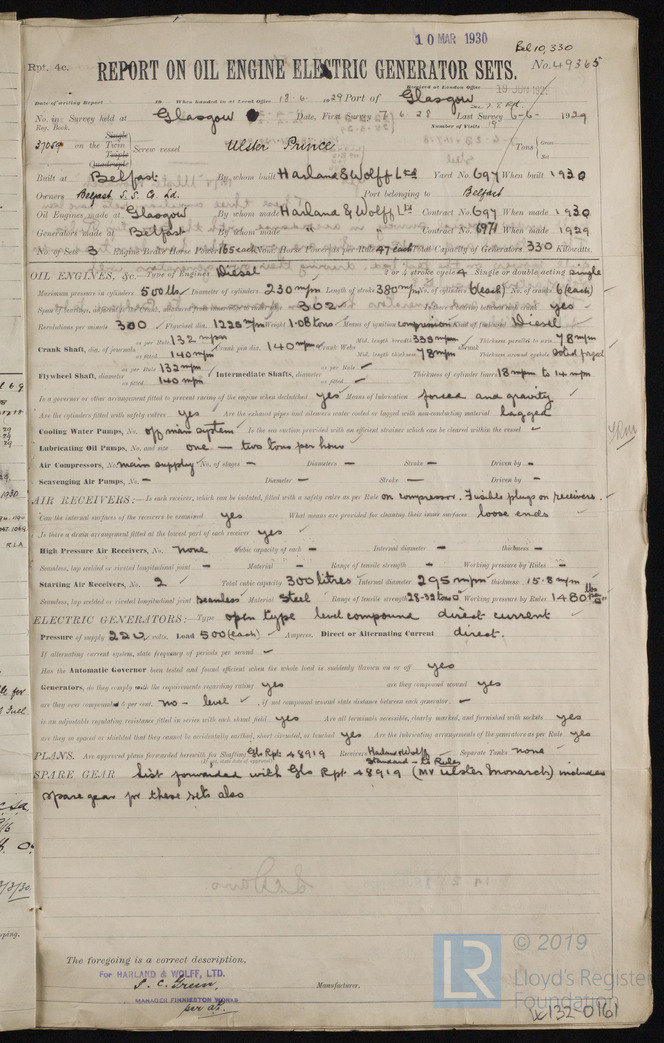 10 MAR 1930
Bel 10,330
Rpt. 4c.
REPORT ON OIL ENGINE ELECTRIC GENERATOR SETS.
No. 49365
Received at London Office
Date of writing Report 19 When handed in at Local Office 18·6· 1929 Port of Glasgow
No. in Survey held at Glasgow Date, First Survey 7·6·28 Last Survey 6-6- 1929
Reg. Book. Number of Visits
37059 on the Single Twin Triple Quadruple Screw vessel Ulster Prince Tons Gross Net
Built at Belfast By whom built Harland & Wolff Ltd Yard No. 697 When built 1930
Owners Belfast S.S. Co. Ld. Port belonging to Belfast
Oil Engines made at Glasgow By whom made Harland & Wolff Ltd Contract No. 697 When made 1930
Generators made at Belfast By whom made " " Contract No. 6971 When made 1929
No. of Sets 3 Engine Brake Horse Power 165 each Nom. Horse Power as per Rule 47 each Total Capacity of Generators 330 Kilowatts.
OIL ENGINES, &c. Type of Engines Diesel 2 or 4 stroke cycle 4 Single or double acting single
Maximum pressure in cylinders 500 lbs Diameter of cylinders 230 mpm Length of stroke 380 mpm No. of cylinders 6 (each) No. of cranks 6 (each)
Span of bearings, adjacent to the Crank, measured from inner edge to inner edge 302 Is there a bearing between each crank yes
Revolutions per minute 300 Flywheel dia. 1225 mpm Weight 1·08 tons Means of ignition compression Kind of fuel used Diesel
Crank Shaft, dia. of journals as per Rule 132 mpm as fitted 140 mpm Crank pin dia. 140 mpm Crank Webs Mid. length breadth 335 mpm Mid. length thickness 78 mpm Thickness parallel to axis 78 mpm Thickness around eyehole solid forged
Flywheel Shaft, diameter as per Rule 132 mpm as fitted 140 mpm Intermediate Shafts, diameter as per Rule - as fitted - Thickness of cylinder liners 18 mpm to 14 mpm
Is a governor or other arrangement fitted to prevent racing of the engine when declutched yes Means of lubrication forced and gravity
Are the cylinders fitted with safety valves yes Are the exhaust pipes and silencers water cooled or lagged with non-conducting material lagged
Cooling Water Pumps, No. off main system Is the sea suction provided with an efficient strainer which can be cleared within the vessel -
Lubricating Oil Pumps, No. and size one - two tons per hour
Air Compressors, No. main supply No. of stages - Diameters - Stroke - Driven by -
Scavenging Air Pumps, No. - Diameter - Stroke - Driven by -
AIR RECEIVERS:- Is each receiver, which can be isolated, fitted with a safety valve as per Rule on compressor. Fusible plugs on receivers.
Can the internal surfaces of the receivers be examined yes What means are provided for cleaning their inner surfaces loose ends
Is there a drain arrangement fitted at the lowest part of each receiver yes
High Pressure Air Receivers, No. none Cubic capacity of each - Internal diameter - thickness -
Seamless, lap welded or riveted longitudinal joint - Material - Range of tensile strength - Working pressure by Rules -
Starting Air Receivers, No. 2 Total cubic capacity 300 litres Internal diameter 295 mpm thickness 15·8 mpm
Seamless, lap welded or riveted longitudinal joint seamless Material Steel Range of tensile strength 28-32 tons Working pressure by Rules 1480 lbs
ELECTRIC GENERATORS:- Type open type level compound direct current
Pressure of supply 220 volts. Load 500 (each) Amperes. Direct or Alternating Current direct.
If alternating current system, state frequency of periods per second -
Has the Automatic Governor been tested and found efficient when the whole load is suddenly thrown on or off yes
Generators, do they comply with the requirements regarding rating yes are they compound wound yes
are they over compounded 5 per cent. no - level, if not compound wound state distance between each generator -
is an adjustable regulating resistance fitted in series with each shunt field yes Are all terminals accessible, clearly marked, and furnished with sockets yes
are they so spaced or shielded that they cannot be accidentally earthed, short circuited, or touched yes Are the lubricating arrangements of the generators as per Rule yes
PLANS. Are approved plans forwarded herewith for Shafting Gls Rpt 48919 Receivers Harland & Wolff Standard - to Rules Separate Tanks none
SPARE GEAR List forwarded with Gls Rpt 48919 (MV Ulster Monarch) includes
spare gear for these sets also
The foregoing is a correct description,
For HARLAND & WOLFF, LTD.
Manufacturer.
MANAGER FINNIESTON WORKS
© 2019
LR
Lloyd's Register
Foundation
132-0161